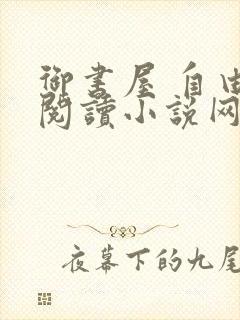 御書屋自由
閱讀小説网
夜幕下的九尾